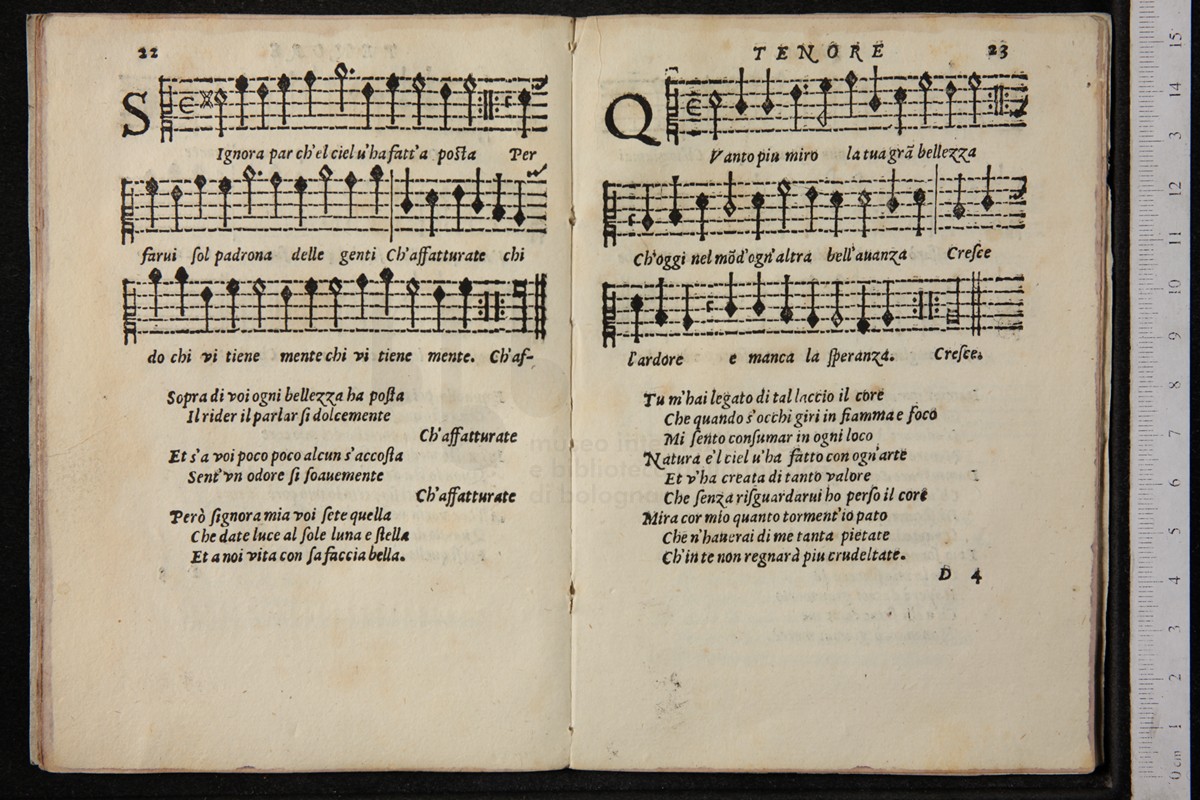 22
S
Ignora par ch'el ciel u'ha fatt'a posta Per
farui sol padrona delle genti Ch'affatturate chi
do chi vi tiene mente chi vi tiene mente. Ch'af-
Sopra di voi ogni bellezza ha posta
Il rider il parlar si dolcemente
Ch'affatturate
Et s'a voi poco poco alcun s'accosta
Sent'vn odore si soauemente
Ch'affatturate
Però signora mia voi sete quella
Che date luce al sole luna e stella
Et a noi vita con sa faccia bella.
TENORE 23
Q
Vanto piu miro la tua grã bellezza
Ch'oggi nel mõd'ogn'altra bell'auanza Cresce
l'ardore e manca la speranza. Cresce.
Tu m'hai legato di tal laccio il core
Che quando s'occhi giri in fiamma e foco
Mi sento consumar in ogni loco
Natura e'l ciel u'ha fatto con ogn'arte
Et v'ha creata di tanto valore
Che senza risguardarui ho perso il core
Mira cor mio quanto torment'io pato
Che n'hauerai di me tanta pietate
Ch'in te non regnarà piu crudeltate.
D 4
museo inte
e bibliote
di bologna
15
14
13
12
11
10
9
8
7
6
5
4
3
2
1
0 cm